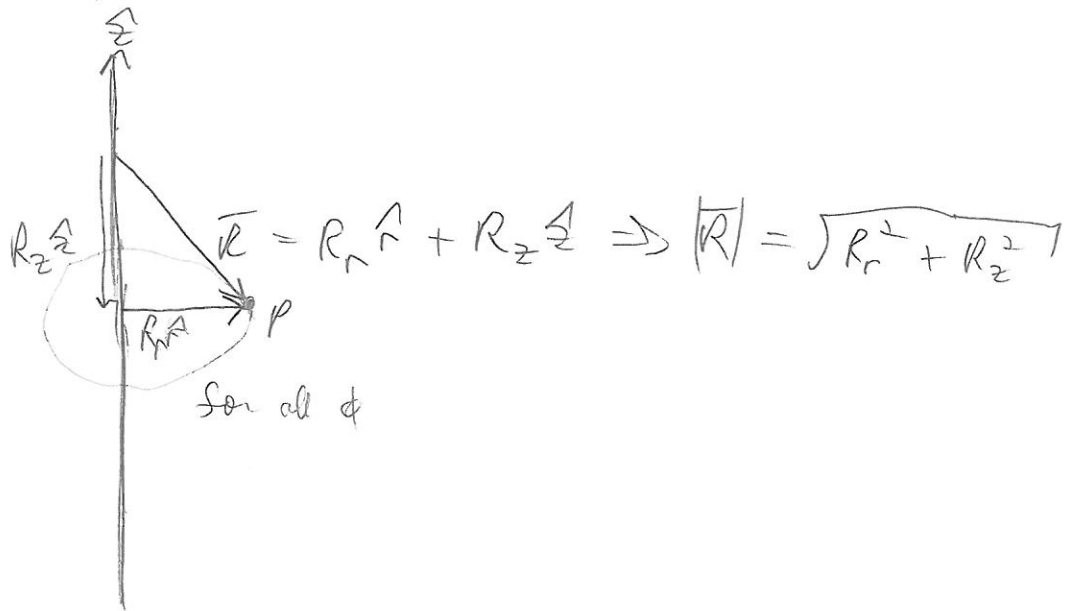 ẑ
R_z ẑ
R̅ = R_r r̂ + R_z ẑ ⇒ |R̅| = √(R_r² + R_z²)
R_r r̂
P
for all φ